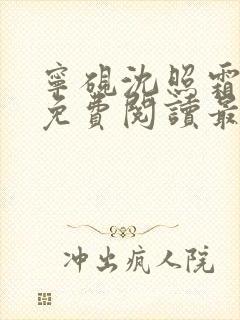 寧硯沈照霜
免費閱讀最
冲出疯人院